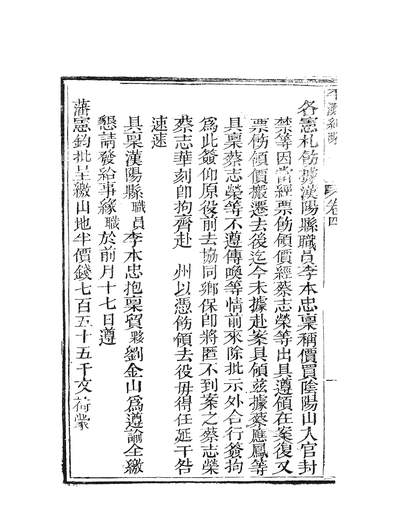 平灘紀略
卷四
各憲札飭據漢陽縣職員李本忠稟稱價買陰陽山入官封
禁等因當經票飭領價經蔡志榮等出具遵領在案復又
票飭領價搬遷去後迄今未據赴案具領兹據蔡應鳳等
具稟蔡志榮等不遵傳喚等情前來除批示外合行簽拘
為此簽仰原役前去協同鄉保即將匿不到案之蔡志榮
蔡志華刻即拘齊赴　州以憑飭領去役毋得任延干咎
速速
具稟漢陽縣職員李本忠抱稟貿夥劉金山為遵諭全繳
懇請發給事緣職於前月十七日遵
藩憲鈞批呈繳山地半價錢七百五十五千文荷蒙